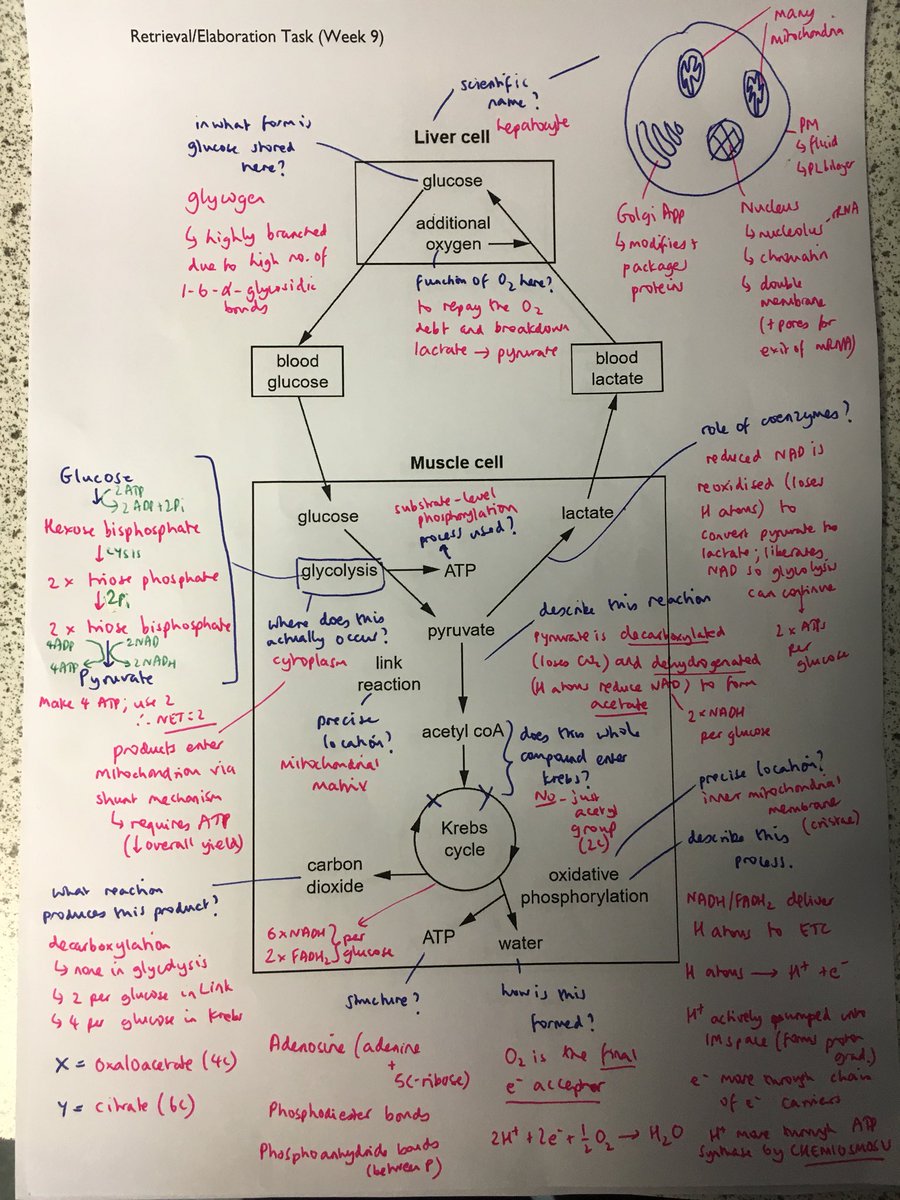 Retrieval/Elaboration Task (Week 9)
many
mitochondria
scientific
name?
hepatocyte
PM
↳ fluid
↳ PL bilayer
in what form is
glucose stored
here?
glycogen
↳ highly branched
due to high no. of
1-6-α-glycosidic
bonds
Liver cell
glucose
additional
oxygen
function of O2 here?
to repay the O2
debt and breakdown
lactate → pyruvate
Golgi App
↳ modifies +
packages
proteins
Nucleus
↳ nucleolus - rRNA
↳ chromatin
↳ double
membrane
(+ pores for
exit of mRNA)
blood
glucose
blood
lactate
Muscle cell
role of coenzymes?
reduced NAD is
reoxidised (loses
H atoms) to
convert pyruvate to
lactate; liberates
NAD so glycolysis
can continue
2 x ATPs
per
glucose
Glucose
2ATP
2ADP+2Pi
Hexose bisphosphate
↓ lysis
2 x triose phosphate
↓ 2Pi
2 x triose bisphosphate
4ADP
2NAD
4ATP
2NADH
Pyruvate
Make 4 ATP; use 2
∴ NET=2
glucose
substrate-level
phosphorylation
process used?
lactate
glycolysis
ATP
where does this
actually occur?
cytoplasm
pyruvate
link
reaction
precise
location?
mitochondrial
matrix
describe this reaction
Pyruvate is decarboxylated
(loses CO2) and dehydrogenated
(H atoms reduce NAD) to form
acetate
2xNADH
per glucose
products enter
mitochondrion via
shunt mechanism
↳ requires ATP
(↓ overall yield)
acetyl coA
does this whole
compound enter
krebs?
No - just
acetyl
group
(2C)
X
Y
Krebs
cycle
precise location?
inner mitochondrial
membrane
(cristae)
carbon
dioxide
oxidative
phosphorylation
describe this
process.
6xNADH
2x FADH2
per
glucose
ATP
water
what reaction
produces this product?
decarboxylation
↳ none in glycolysis
↳ 2 per glucose in Link
↳ 4 per glucose in Krebs
X = Oxaloacetate (4C)
Y = citrate (6C)
structure?
Adenosine (adenine
+
5C-ribose)
Phosphodiester bonds
Phosphoanhydride bonds
(between P)
how is this
formed?
O2 is the final
e- acceptor
2H+ + 2e- + ½O2 → H2O
NADH/FADH2 deliver
H atoms to ETC
H atoms → H+ + e-
H+ actively pumped into
IM space (forms proton
grad.)
e- move through chain
of e- carriers
H+ move through ATP
synthase by CHEMIOSMOSIS